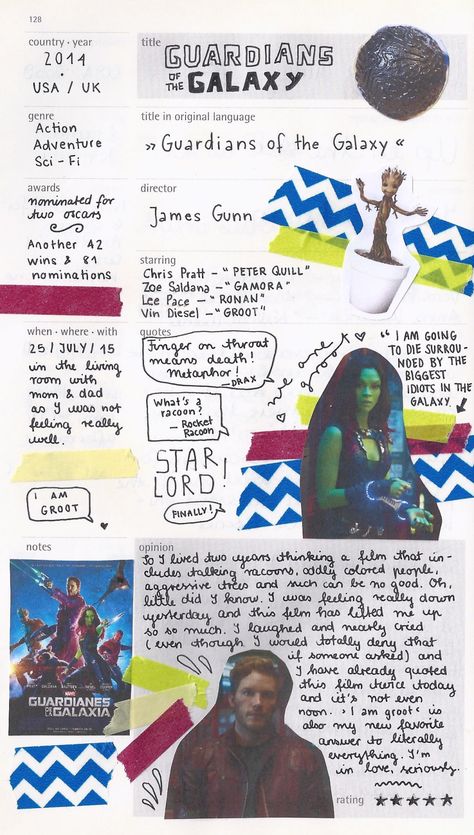 128
country · year
2014
·
USA / UK
title
GUARDIANS
OF THE GALAXY
genre
Action
Adventure
Sci-Fi
title in original language
» Guardians of the Galaxy «
awards
nominated for
two oscars
Another 42
wins & 81
nominations
director
James Gunn
starring
Chris Pratt – "PETER QUILL"
Zoe Saldana – "GAMORA"
Lee Pace – "RONAN"
Vin Diesel – "GROOT"
when · where · with
25 / JULY / 15
in the living
room with
mom & dad
as I was not
feeling really
well.
I AM
GROOT
quotes
Finger on throat
means death!
Metaphor!
– DRAX
What's a
racoon?
– Rocket
Racoon
STAR
LORD!
FINALLY!
we are
groot
"I AM GOING
TO DIE SURROU-
NDED BY THE
BIGGEST
IDIOTS IN THE
GALAXY.
notes
MARVEL
GUARDIANES
DE LA GALAXIA
opinion
So I lived two years thinking a film that in-
cludes talking racoons, oddly colored people,
aggressive trees and such can be no good. Oh,
little did I know. I was feeling really down
yesterday and this film has lifted me up
so so much. I laughed and nearly cried
(even though I would totally deny that
if someone asked) and
I have already quoted
this film twice today
and it's not even
noon. »I am groot« is
also my new favorite
answer to literally
everything. I'm
in love, seriously.
rating ★★★★★